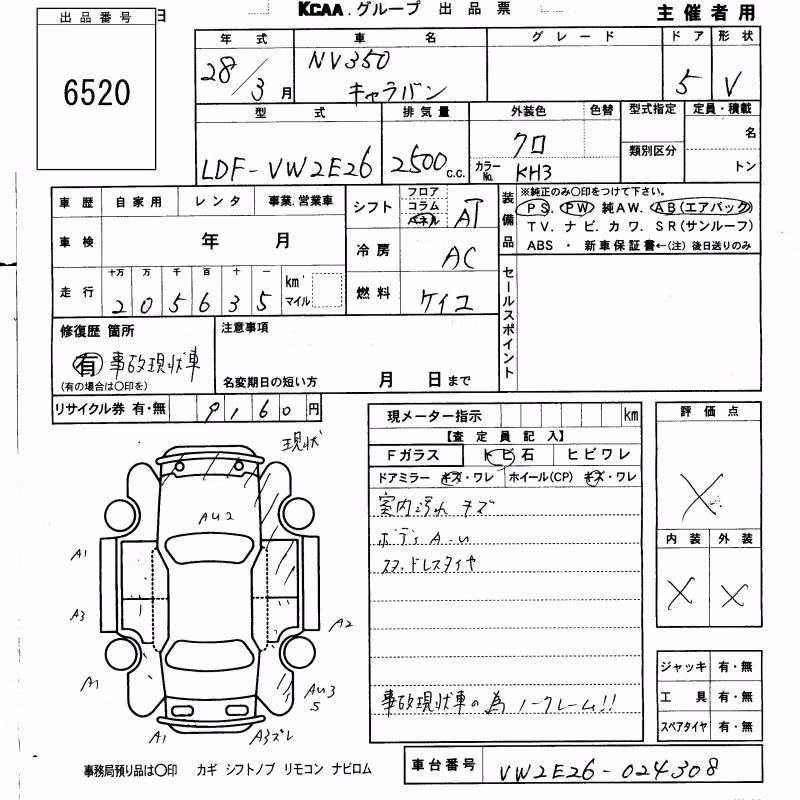 KCAA.グループ 出品票
主催者用
出品番号
6520
年式 車名 グレード ドア 形状
28/3月 NV350 キャラバン 5 V
型式 排気量 外装色 色替 型式指定 定員・積載
LDF-VW2E26 2500 c.c. クロ 類別区分 名
カラーNo. KH3 トン
車歴 自家用 レンタ 事業.営業車
車検 年 月
走行 十万 万 千 百 十 一 km マイル
2 0 5 6 3 5
シフト フロア コラム パネル AT
冷房 AC
燃料 ケイユ
装備品 ※純正のみ〇印をつけて下さい。
PS. PW 純AW. AB(エアバック)
TV. ナビ. カワ. SR(サンルーフ)
ABS ・ 新車保証書←(注) 後日送りのみ
セールスポイント
修復歴 箇所
有 事故現状車
(有の場合は〇印を)
注意事項
名変期日の短い方 月 日まで
リサイクル券 有・無 9160円
現状
AU2
A1
A3
A1
A2
AU3
S
A1 A3ズレ
現メーター指示 km
【査定員記入】
Fガラス トビ石 ヒビワレ
ドアミラー キズ・ワレ ホイール(CP) キズ・ワレ
室内汚れ キズ
ボディ A-U
スタッドレスタイヤ
事故現状車の為 ノークレーム!!
評価点
X
内装 外装
X X
ジャッキ 有・無
工具 有・無
スペアタイヤ 有・無
事務局預り品は〇印 カギ シフトノブ リモコン ナビロム
車台番号 VW2E26-024308